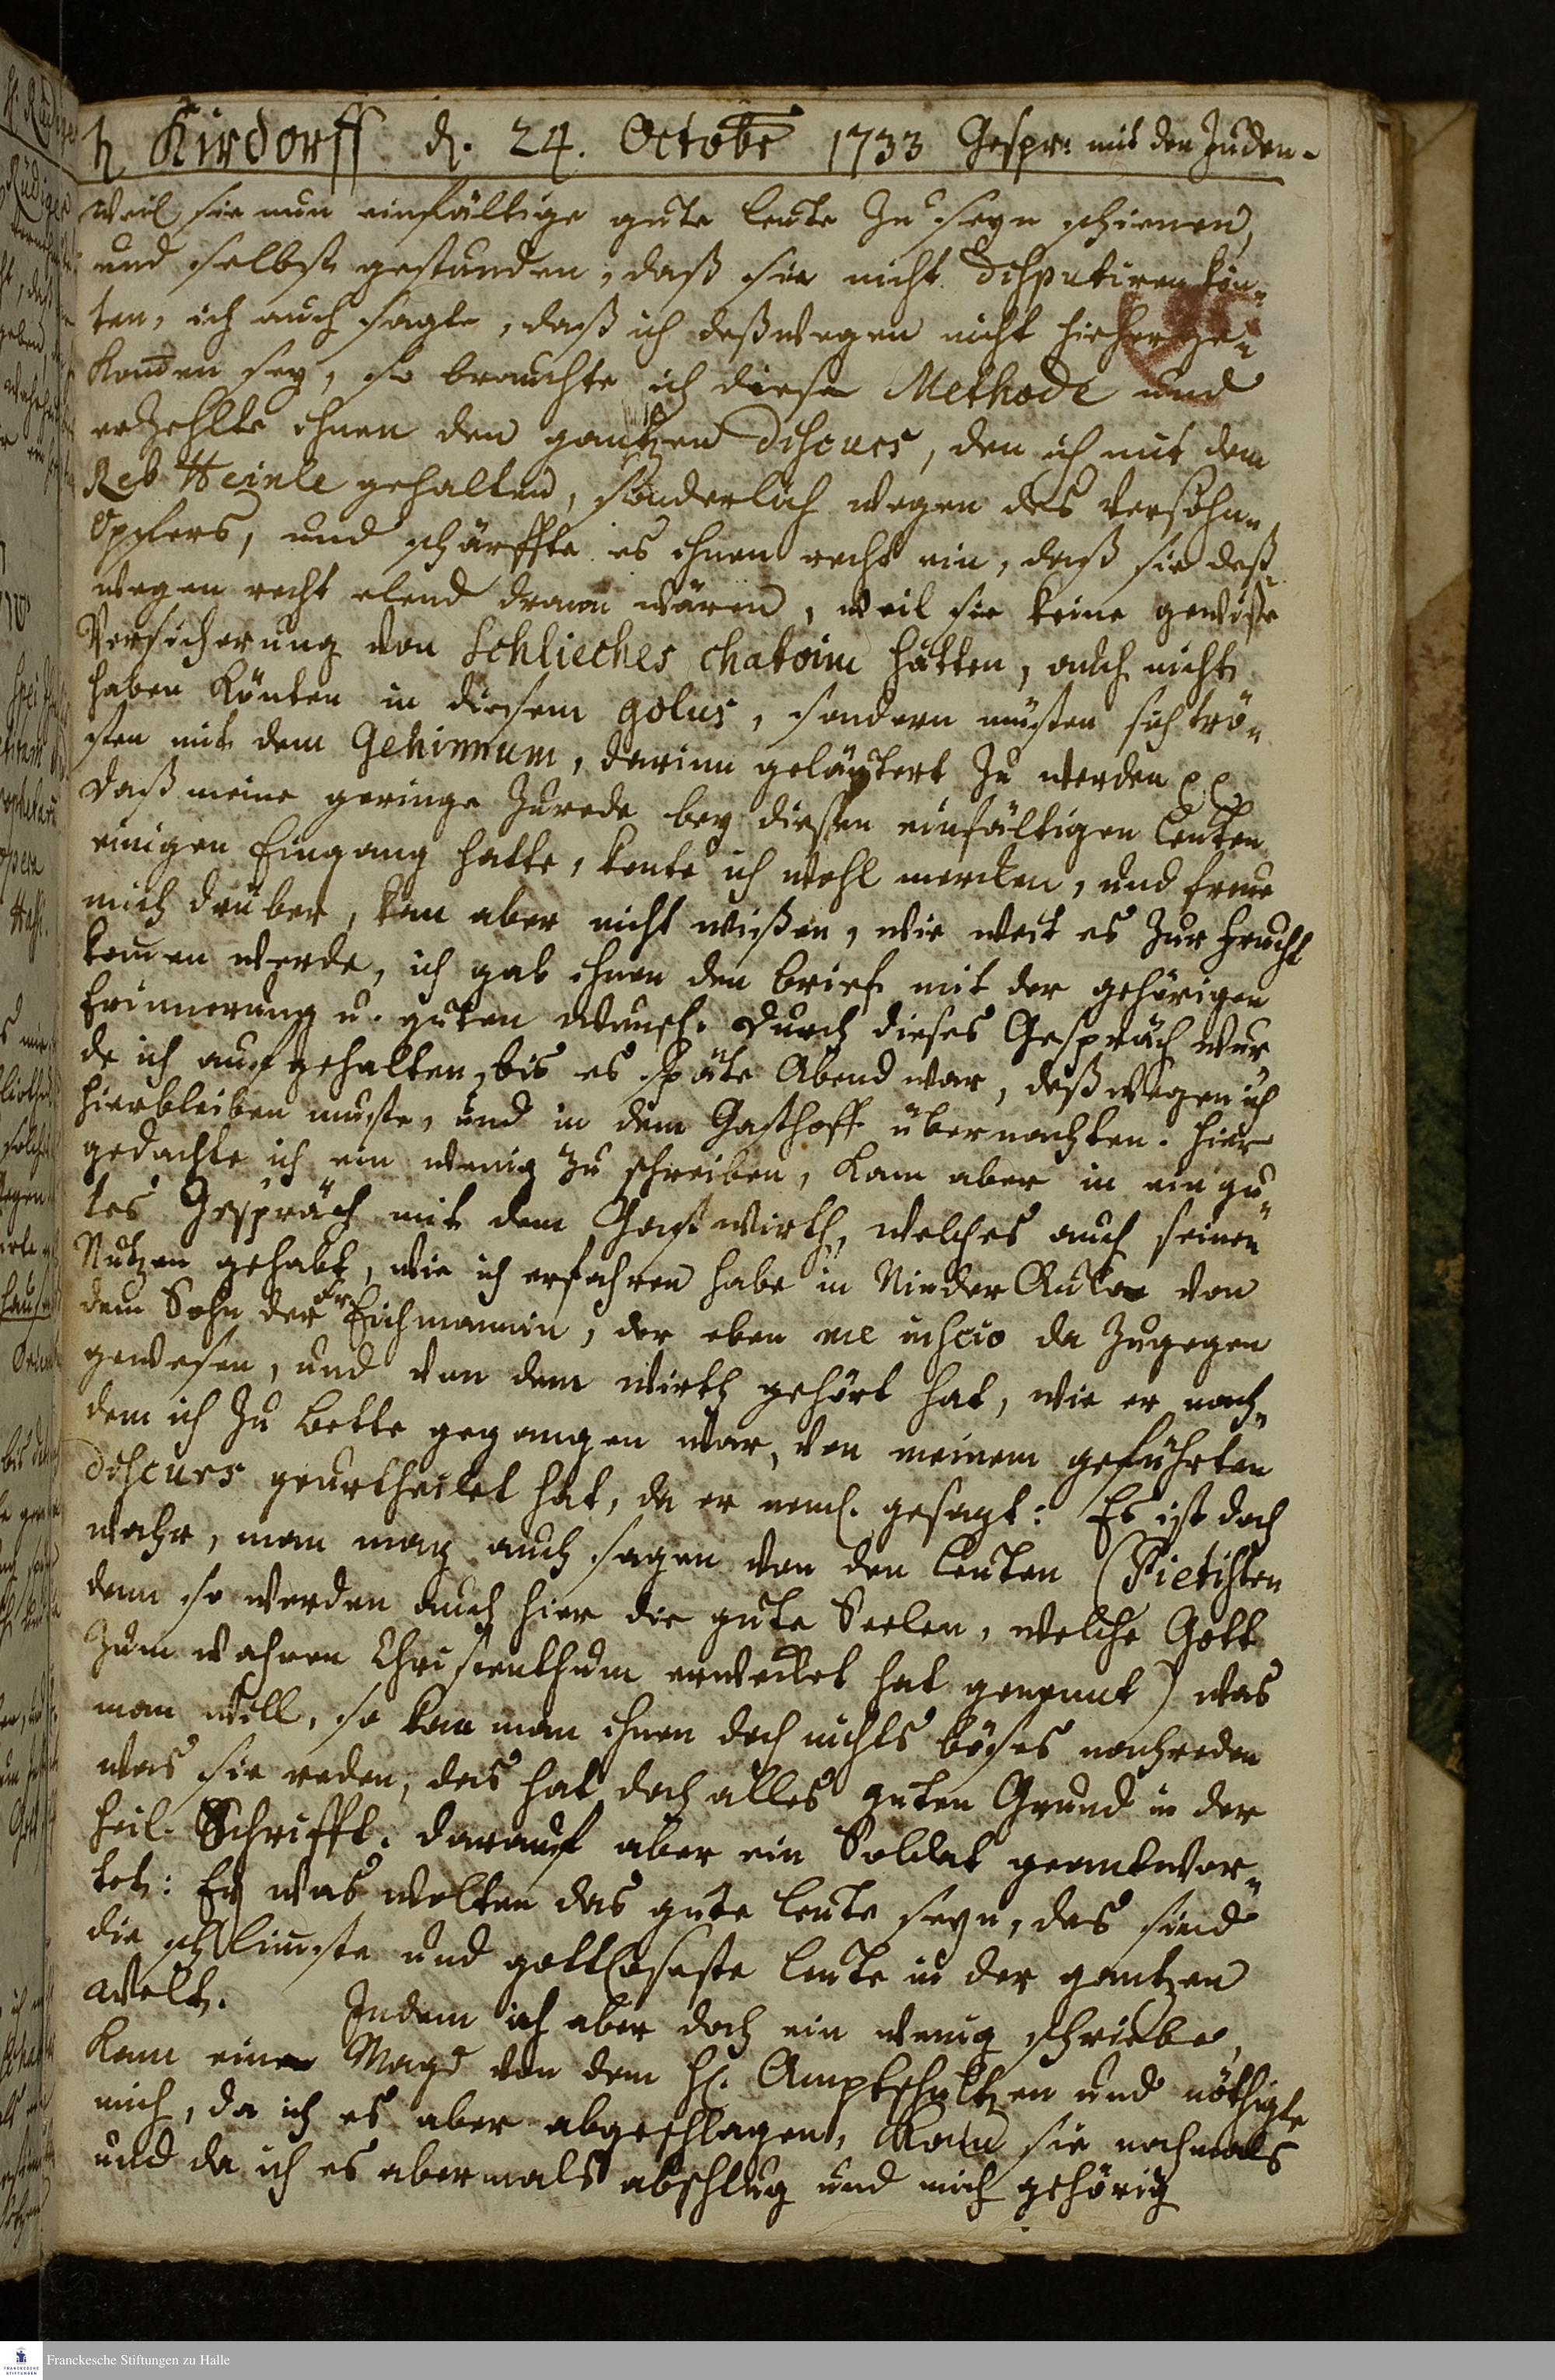 ♄ Kirdorff d. 24. Octobr 1733 Gespr: mit den Juden.
Weil sie nun einfältige gute Leute zu seyn schienen,
und selbst gestunden, daß sie nicht disputiren kön-
ten, ich auch sagte, daß ich deßwegen nicht hieher ge-
kom̄en sey, so brauchte ich diese Methode und
erzehlte ihnen den gantzen Discurs, den ich mit dem
Reb Heinle gehalten, sonderlich wegen des Versöhn-
Opfers, und schärffte es ihnen recht ein, daß sie deß-
wegen recht elend dran wären, weil sie keine gewiße
Versicherung von Schlieches chatoim hätten, auch nicht
haben könten in diesem golus, sondern müsten sich trö-
sten mit dem Gehinnum, darinn geläutert zu werden p. p.
Daß meine geringe Zurede bey diesen einfältigen Leuten
einigen Eingang hatte, konte ich wohl mercken, und freue
mich drüber, kan aber nicht wißen, wie weit es zur Frucht
kom̄en werde, ich gab ihnen den brief mit der gehörigen
Erinnerung u. guten Wunsch. Durch dieses Gespräch wur-
de ich aufgehalten, bis es späte Abend war, deßwegen ich
hierbleiben muste, und in dem Gasthoff übernachten. Hier
gedachte ich ein wenig zu schreiben, kam aber in ein gu-
tes Gespräch mit dem Gastwirth, welches auch seinen
Nutzen gehabt, wie ich erfahren habe in Nieder Aula von
dem Sohn der Fr Eichmannin, der eben me inscio da zugegen
gewesen, und von dem Wirth gehört hat, wie er nach-
dem ich zu Bette gegangen war, von meinem geführten
Discurs geurtheilet hat, da er neml. gesagt: Es ist doch
wahr, man mag auch sagen von den Leuten (Pietisten
denn so werden auch hier die gute Seelen, welche Gott
zum wahren Christenthum erwecket hat genennt) was
man will, so kan man ihnen doch nichts böses nachreden
was sie reden, das hat doch alles guten Grund in der
heil. Schrifft. Darauf aber ein Soldat geantwor-
tet: Ey was wolten das gute Leute seyn, das sind
die schlim̄ste und gottloseste Leute in der gantzen
Welt. Indem ich aber doch ein wenig schriebe,
kam eine Magd von dem H. Amptschultzen und nöthigte
mich, da ich es aber abgeschlagen, kam sie nochmals
und da ich es abermals abschlug und mich gehörig
Franckesche Stiftungen zu Halle